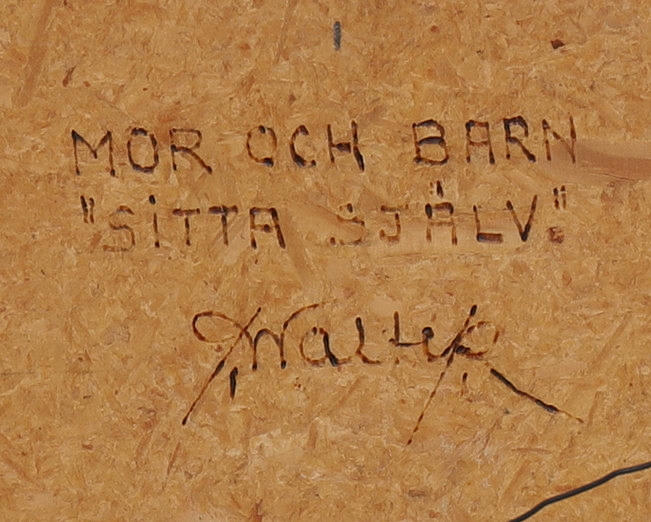 MOR OCH BARN
"SITTA SJÄLV".